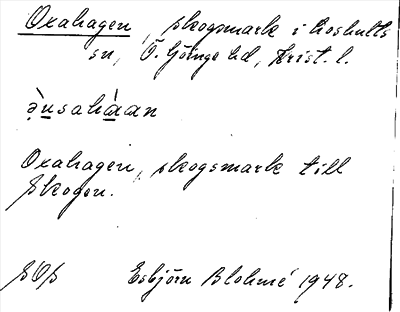 Oxahagen, skogsmark i Loshults
sn, Ö. Göinge hd, Krist. l.
Oxahagen, skogsmark till
Skogen.
SOS Esbjörn Blohmé 1948.